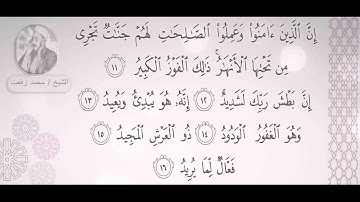 إِنَّ ٱلَّذِينَ ءَامَنُوا۟ وَعَمِلُوا۟ ٱلصَّـٰلِحَـٰتِ لَهُمْ جَنَّـٰتٌ تَجْرِى
مِن تَحْتِهَا ٱلْأَنْهَـٰرُ ۚ ذَٰلِكَ ٱلْفَوْزُ ٱلْكَبِيرُ ١١
إِنَّ بَطْشَ رَبِّكَ لَشَدِيدٌ ١٢ إِنَّهُۥ هُوَ يُبْدِئُ وَيُعِيدُ ١٣
وَهُوَ ٱلْغَفُورُ ٱلْوَدُودُ ١٤ ذُو ٱلْعَرْشِ ٱلْمَجِيدُ ١٥
فَعَّالٌ لِّمَا يُرِيدُ ١٦
الشيخ / محمد رفعت